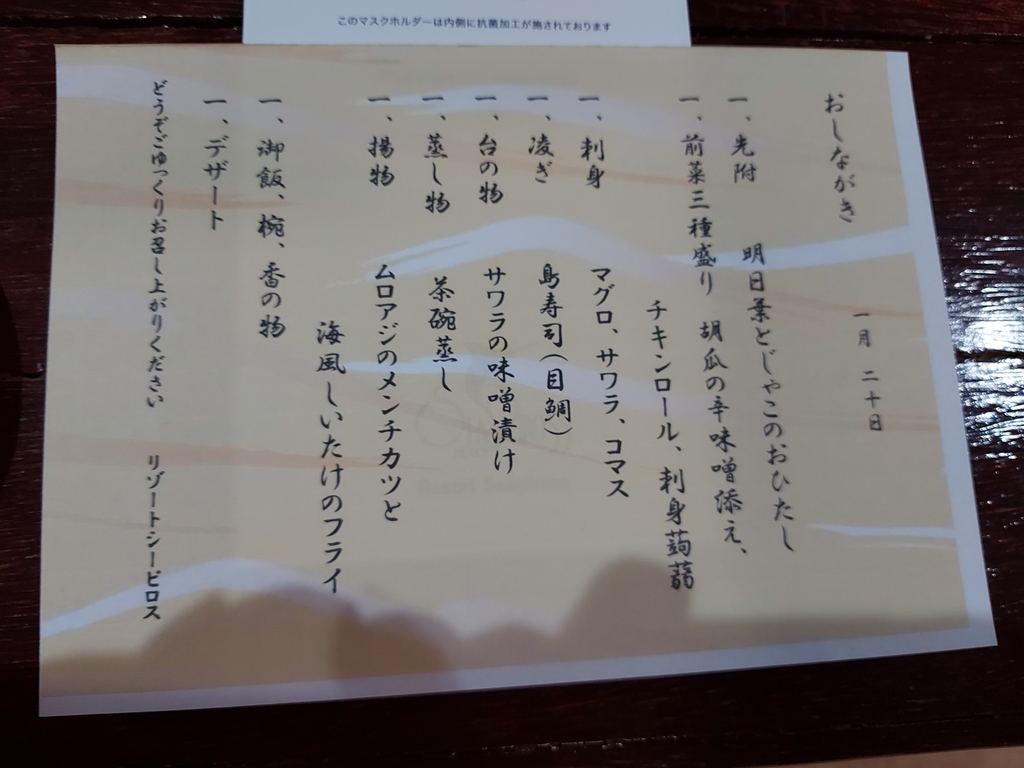 このマスクホルダーは内側に抗菌加工が施されております
おしながき
一月 二十日
一、先附
明日葉とじゃこのおひたし
一、前菜三種盛り 胡瓜の辛味噌添え、
チキンロール、刺身蒟蒻
一、刺身
マグロ、サワラ、コマス
一、凌ぎ
島寿司(目鯛)
一、台の物
サワラの味噌漬け
一、蒸し物
茶碗蒸し
一、揚物
ムロアジのメンチカツと
海風しいたけのフライ
一、御飯、椀、香の物
一、デザート
どうぞごゆっくりお召し上がりください リゾートシーピロス